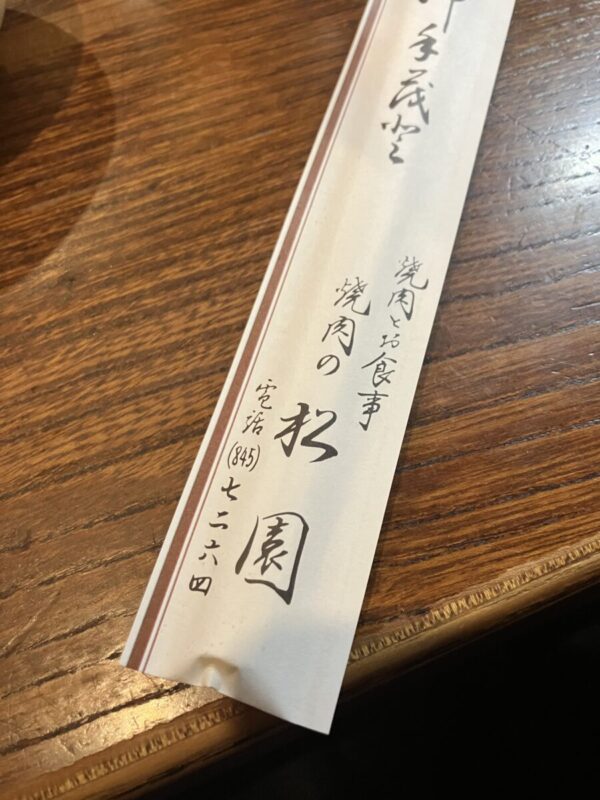 手茂登
焼肉とお食事
焼肉の
松園
電話(845)七二六四